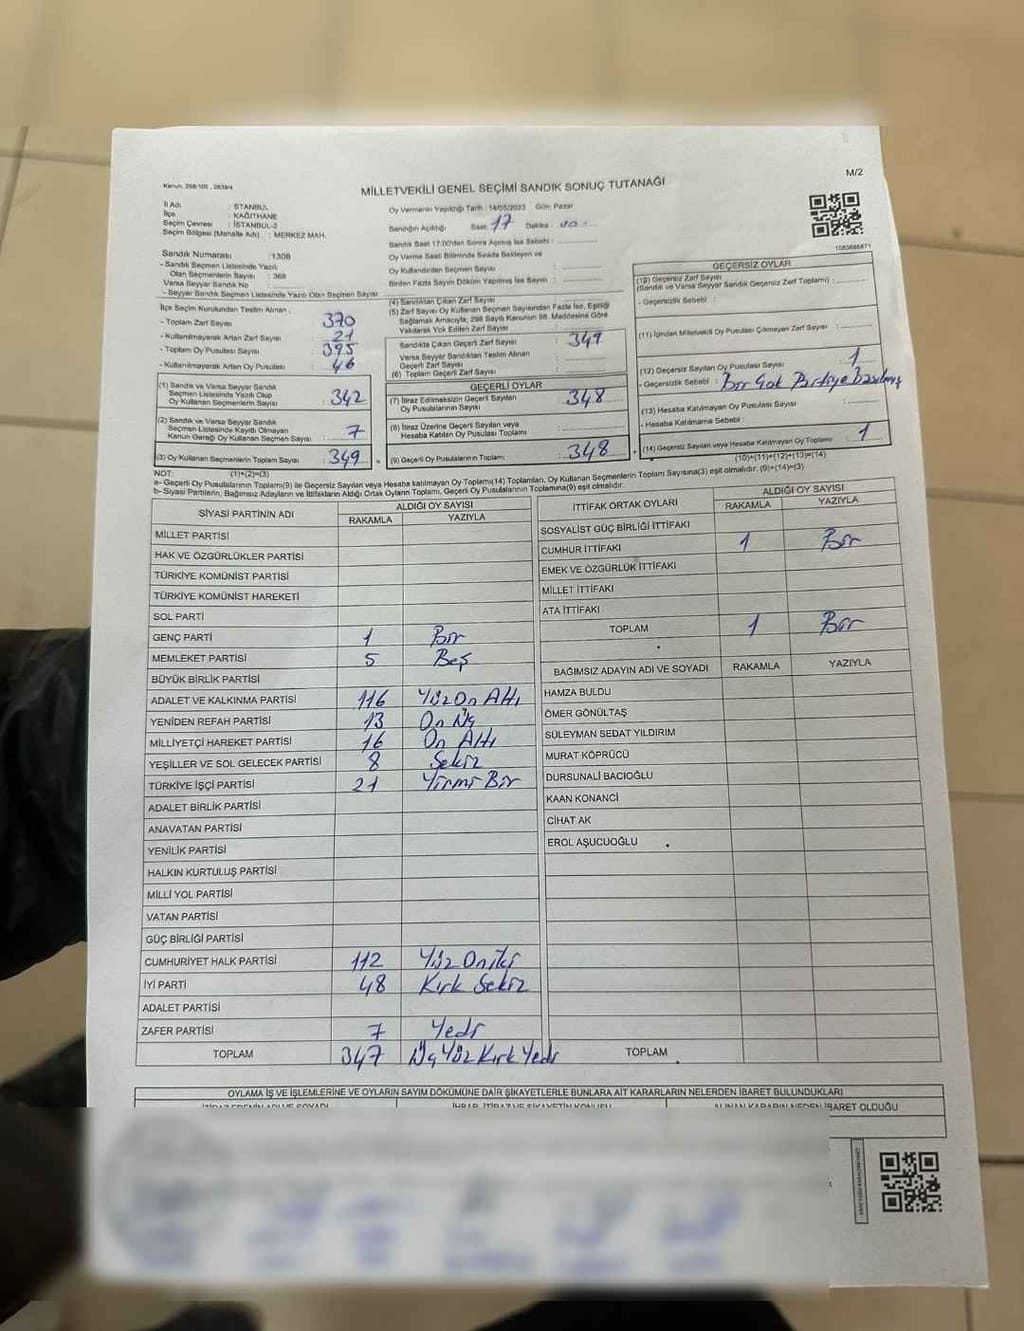 M/2
Kanun: 298/105 , 2839/4
MİLLETVEKİLİ GENEL SEÇİMİ SANDIK SONUÇ TUTANAĞI
İl Adı : İSTANBUL
İlçe : KAĞITHANE
Seçim Çevresi : İSTANBUL-2
Seçim Bölgesi (Mahalle Adı) : MERKEZ MAH.
Oy Vermenin Yapıldığı Tarih : 14/05/2023 Gün: Pazar
Sandığın Açıldığı Saat: 17 Dakika :
Sandık Saat 17.00'den Sonra Açılmış İse Sebebi :
Oy Verme Saati Bitiminde Sırada Bekleyen ve
Oy Kullandırılan Seçmen Sayısı :
Birden Fazla Sayım Döküm Yapılmış İse Sayısı :
Sandık Numarası : 1308
- Sandık Seçmen Listesinde Yazılı
Olan Seçmenlerin Sayısı : 368
Varsa Seyyar Sandık No :
- Seyyar Sandık Seçmen Listesinde Yazılı Olan Seçmen Sayısı
İlçe Seçim Kurulundan Teslim Alınan ;
- Toplam Zarf Sayısı : 370
- Kullanılmayarak Artan Zarf Sayısı : 21
- Toplam Oy Pusulası Sayısı : 395
- Kullanılmayarak Artan Oy Pusulası : 46
(1) Sandık ve Varsa Seyyar Sandık
Seçmen Listesinde Yazılı Olup
Oy Kullanan Seçmenlerin Sayısı : 342
(2) Sandık ve Varsa Seyyar Sandık
Seçmen Listesinde Kayıtlı Olmayan
Kanun Gereği Oy Kullanan Seçmen Sayısı : 7
(3) Oy Kullanan Seçmenlerin Toplam Sayısı : 349
(1)+(2)=(3)
(4) Sandıktan Çıkan Zarf Sayısı
(5) Zarf Sayısı Oy Kullanan Seçmen Sayısından Fazla İse, Eşitliği
Sağlamak Amacıyla, 298 Sayılı Kanunun 98. Maddesine Göre
Yakılarak Yok Edilen Zarf Sayısı :
Sandıkta Çıkan Geçerli Zarf Sayısı : 349
Varsa Seyyar Sandıktan Teslim Alınan
Geçerli Zarf Sayısı :
(6) Toplam Geçerli Zarf Sayısı :
GEÇERLİ OYLAR
(7) İtiraz Edilmeksizin Geçerli Sayılan
Oy Pusulalarının Sayısı : 348
(8) İtiraz Üzerine Geçerli Sayılan veya
Hesaba Katılan Oy Pusulası Toplamı :
(9) Geçerli Oy Pusulalarının Toplamı : 348
GEÇERSİZ OYLAR
(10) Geçersiz Zarf Sayısı
(Sandık ve Varsa Seyyar Sandık Geçersiz Zarf Toplamı) :
- Geçersizlik Sebebi :
(11) İçinden Milletvekili Oy Pusulası Çıkmayan Zarf Sayısı :
(12) Geçersiz Sayılan Oy Pusulası Sayısı : 1
- Geçersizlik Sebebi : Bir Çok Partiye Basılmış
(13) Hesaba Katılmayan Oy Pusulası Sayısı :
- Hesaba Katılmama Sebebi :
(14) Geçersiz Sayılan veya Hesaba Katılmayan Oy Toplamı : 1
(10)+(11)+(12)+(13)=(14)
NOT:
a- Geçerli Oy Pusulalarının Toplamı(9) ile Geçersiz Sayılan veya Hesaba katılmayan Oy Toplamı(14) Toplamları, Oy Kullanan Seçmenlerin Toplam Sayısına(3) eşit olmalıdır. (9)+(14)=(3)
b- Siyasi Partilerin, Bağımsız Adayların ve İttifakların Aldığı Ortak Oyların Toplamı, Geçerli Oy Pusulalarının Toplamına(9) eşit olmalıdır.
SİYASİ PARTİNİN ADI ALDIĞI OY SAYISI
RAKAMLA YAZIYLA
MİLLET PARTİSİ
HAK VE ÖZGÜRLÜKLER PARTİSİ
TÜRKİYE KOMÜNİST PARTİSİ
TÜRKİYE KOMÜNİST HAREKETİ
SOL PARTİ
GENÇ PARTİ 1 Bir
MEMLEKET PARTİSİ 5 Beş
BÜYÜK BİRLİK PARTİSİ
ADALET VE KALKINMA PARTİSİ 116 Yüz On Altı
YENİDEN REFAH PARTİSİ 13 On Üç
MİLLİYETÇİ HAREKET PARTİSİ 16 On Altı
YEŞİLLER VE SOL GELECEK PARTİSİ 8 Sekiz
TÜRKİYE İŞÇİ PARTİSİ 21 Yirmi Bir
ADALET BİRLİK PARTİSİ
ANAVATAN PARTİSİ
YENİLİK PARTİSİ
HALKIN KURTULUŞ PARTİSİ
MİLLİ YOL PARTİSİ
VATAN PARTİSİ
GÜÇ BİRLİĞİ PARTİSİ
CUMHURİYET HALK PARTİSİ 112 Yüz On İki
İYİ PARTİ 48 Kırk Sekiz
ADALET PARTİSİ
ZAFER PARTİSİ 7 Yedi
TOPLAM 347 Üç Yüz Kırk Yedi
İTTİFAK ORTAK OYLARI ALDIĞI OY SAYISI
RAKAMLA YAZIYLA
SOSYALİST GÜÇ BİRLİĞİ İTTİFAKI
CUMHUR İTTİFAKI 1 Bir
EMEK VE ÖZGÜRLÜK İTTİFAKI
MİLLET İTTİFAKI
ATA İTTİFAKI
TOPLAM 1 Bir
BAĞIMSIZ ADAYIN ADI VE SOYADI RAKAMLA YAZIYLA
HAMZA BULDU
ÖMER GÖNÜLTAŞ
SÜLEYMAN SEDAT YILDIRIM
MURAT KÖPRÜCÜ
DURSUNALİ BACIOĞLU
KAAN KONANCİ
CİHAT AK
EROL AŞUCUOĞLU
TOPLAM
OYLAMA İŞ VE İŞLEMLERİNE VE OYLARIN SAYIM DÖKÜMÜNE DAİR ŞİKAYETLERLE BUNLARA AİT KARARLARIN NELERDEN İBARET BULUNDUKLARI
İHBAR, İTİRAZ VE ŞİKAYETİN KONUSU ALINAN KARARIN NEDEN İBARET OLDUĞU